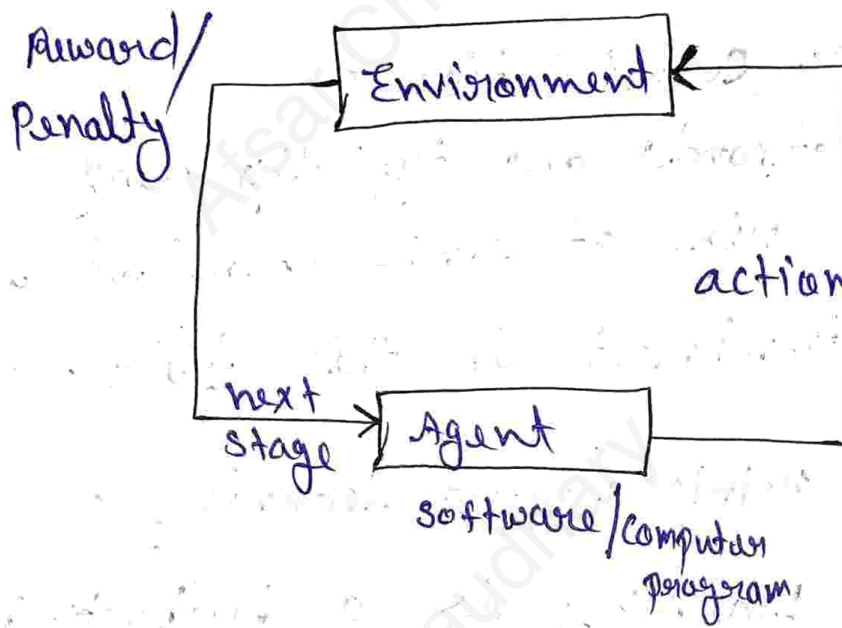 Reward/
Penalty
Environment
action
next
stage
Agent
software/computer
program
Afsar Ch
audhary